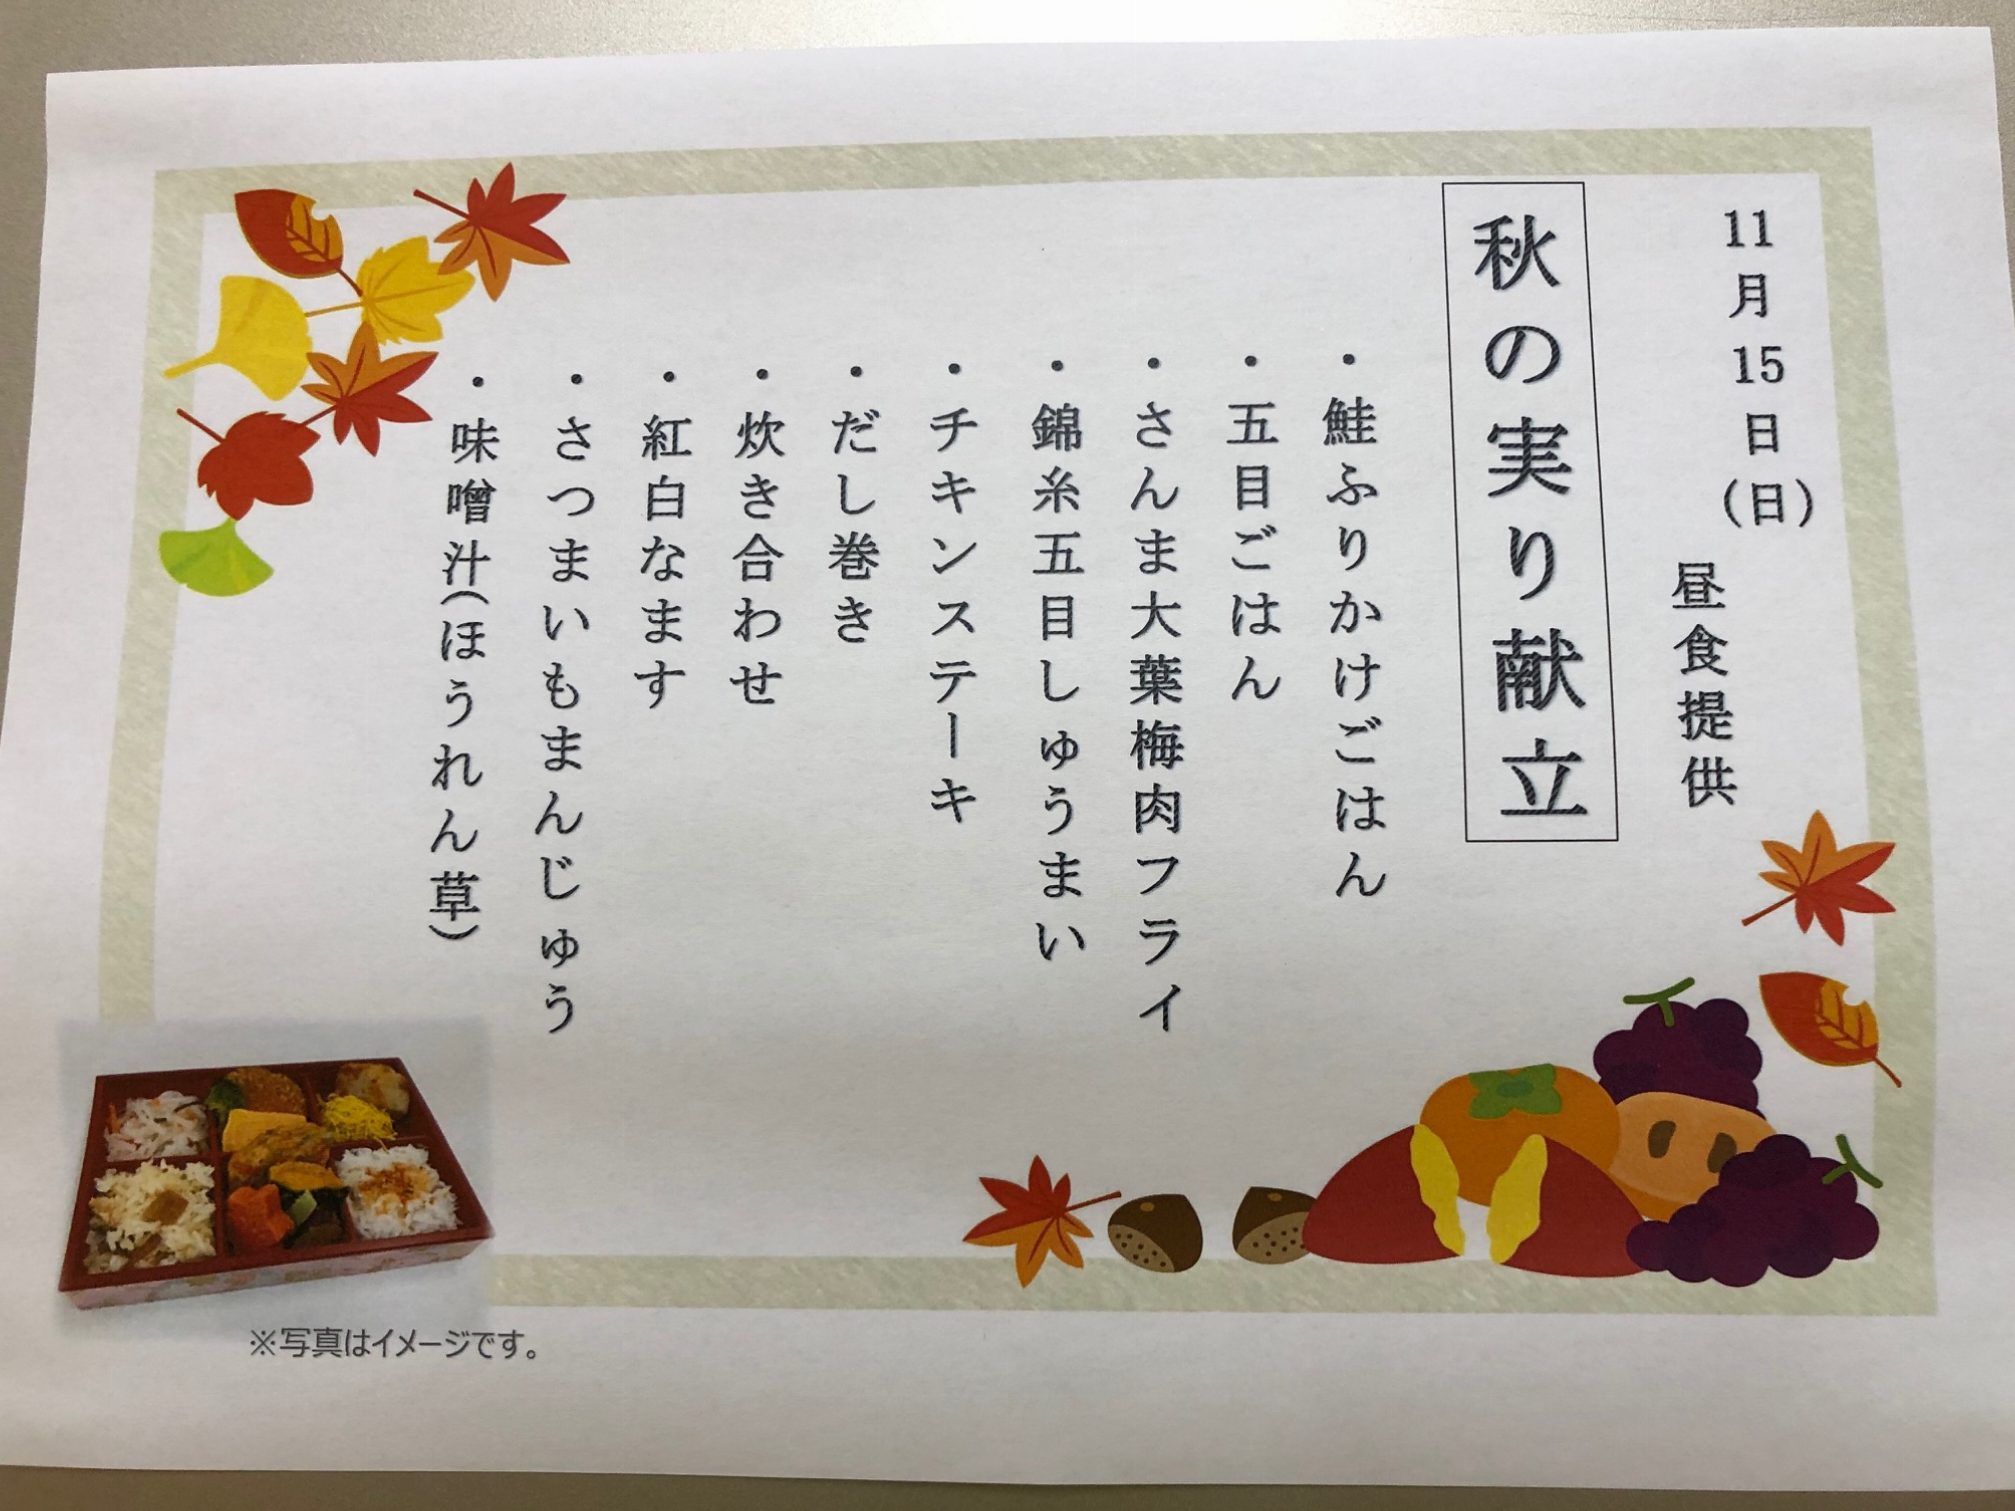 11月15日（日）
昼食提供
秋の実り献立
・鮭ふりかけごはん
・五目ごはん
・さんま大葉梅肉フライ
・錦糸五目しゅうまい
・チキンステーキ
・だし巻き
・炊き合わせ
・紅白なます
・さつまいもまんじゅう
・味噌汁（ほうれん草）
※写真はイメージです。